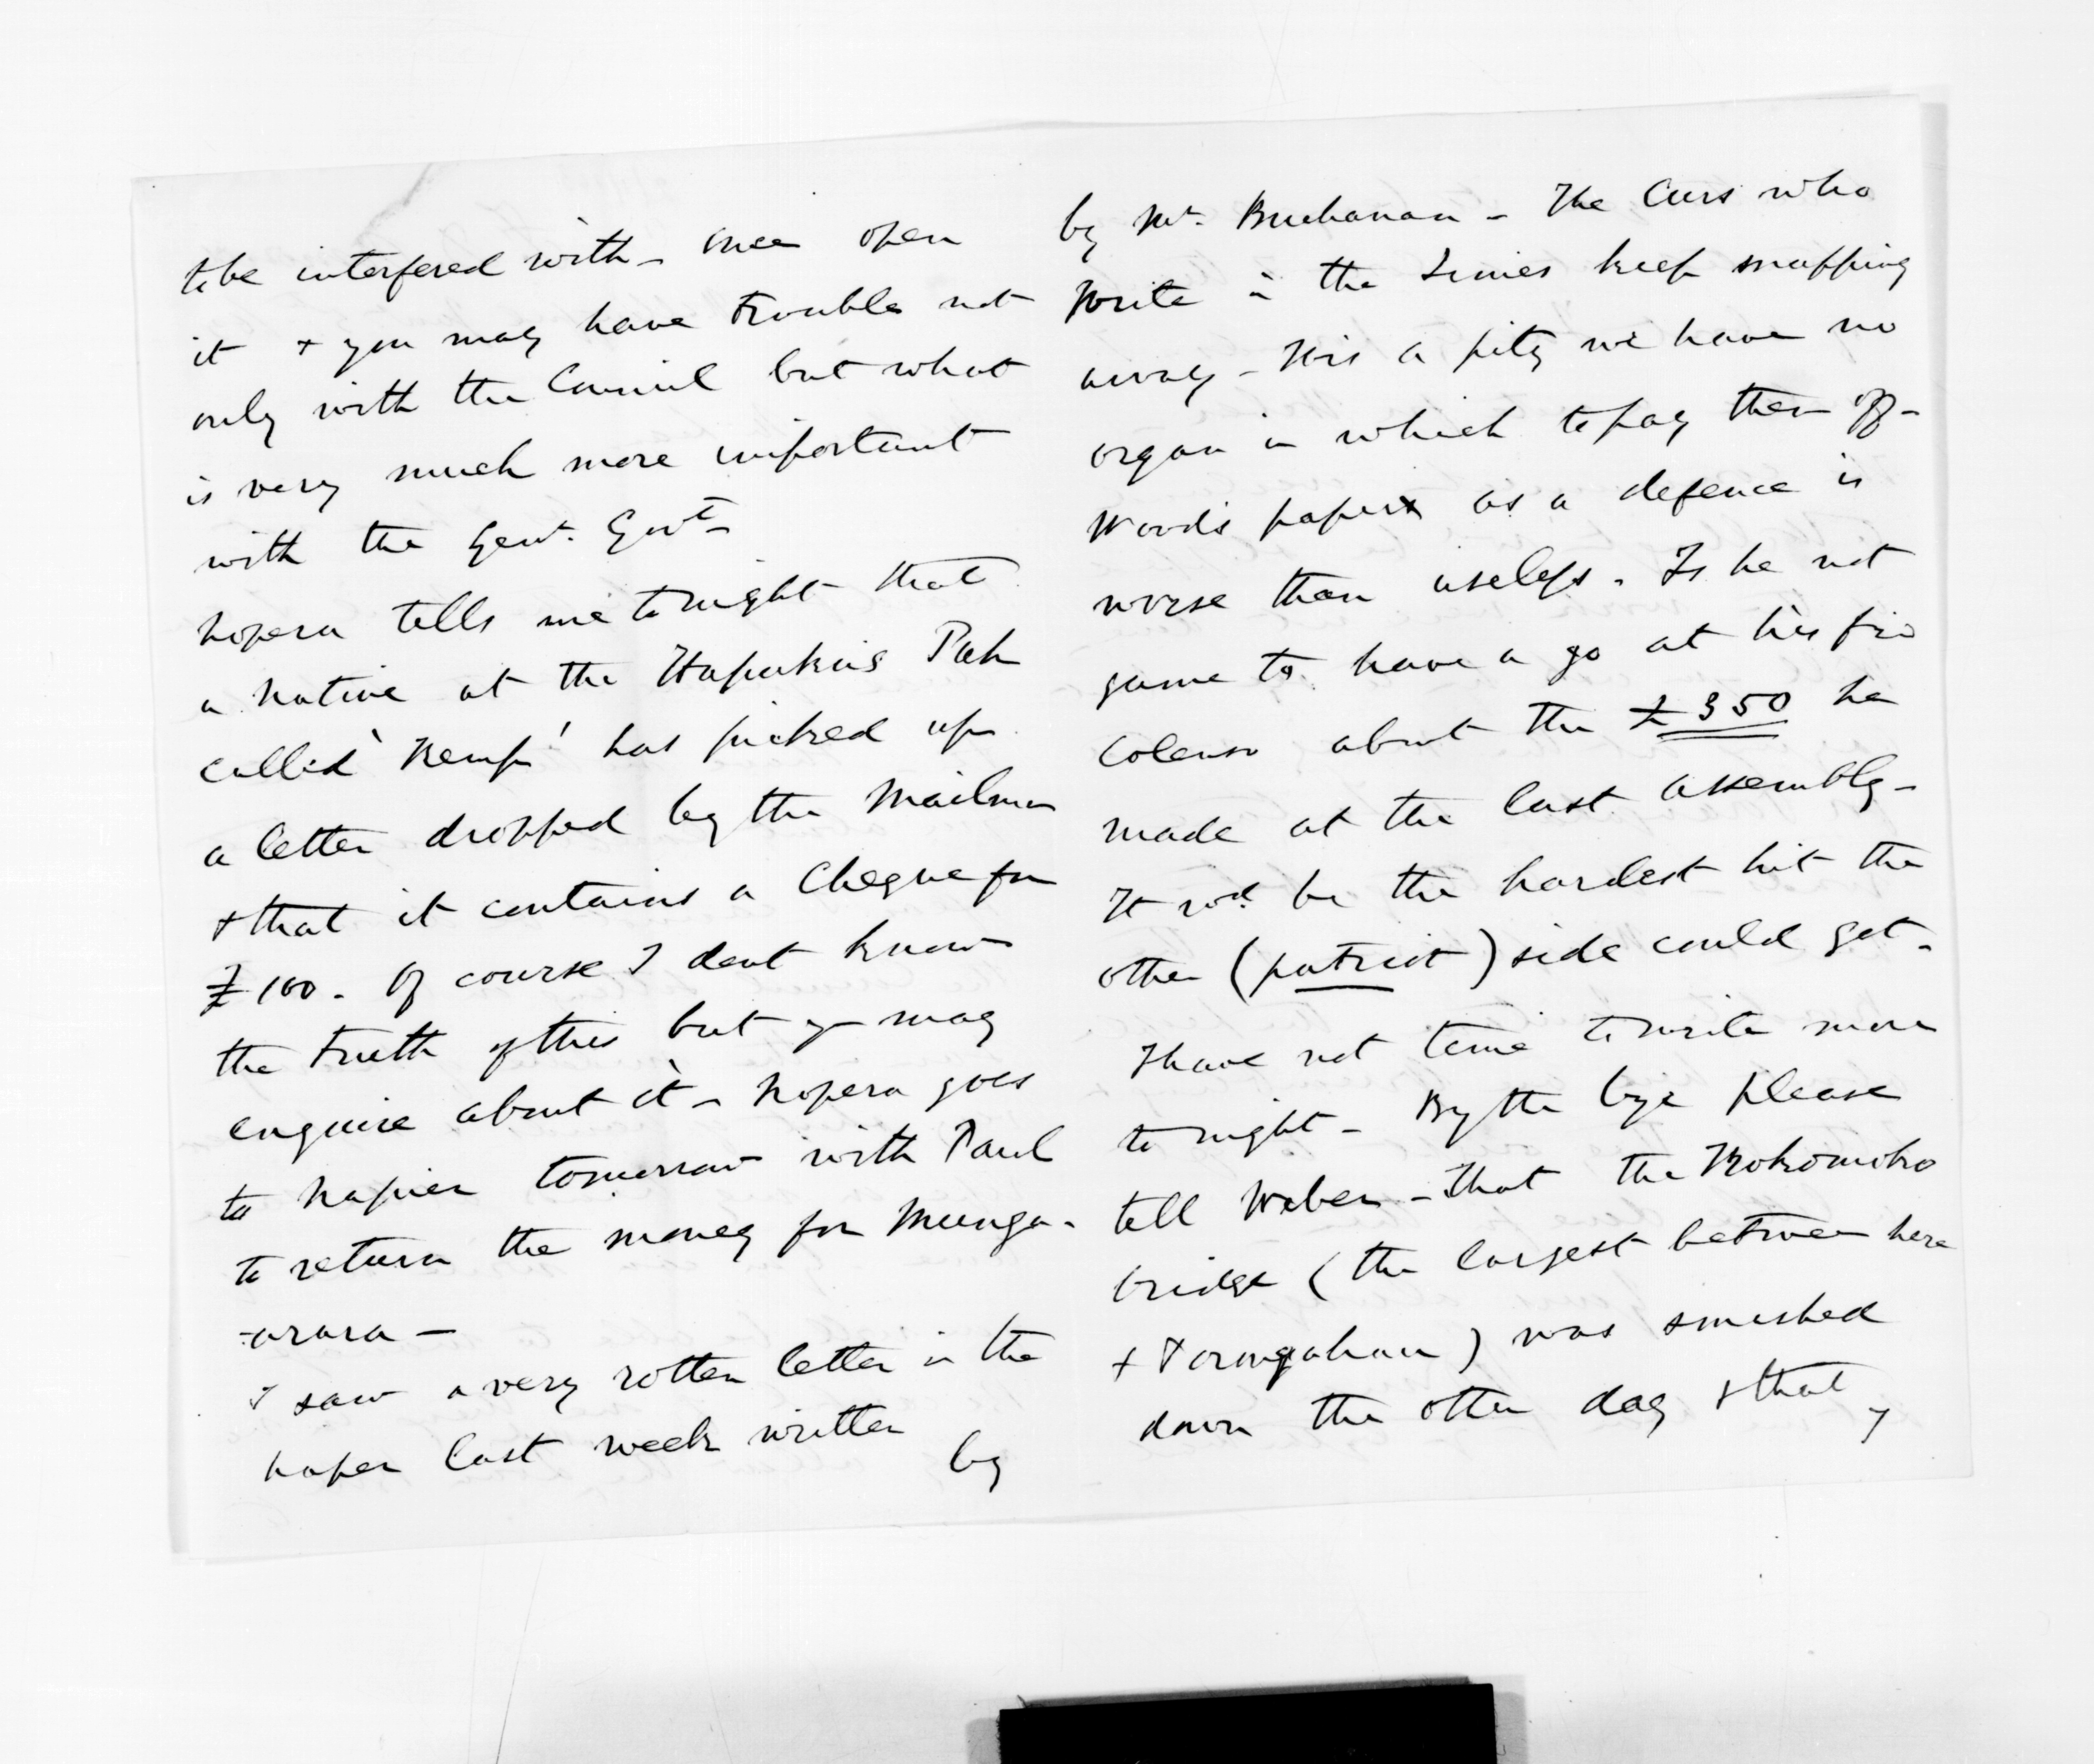 to be interfered with - once open
it + you may have trouble not
only with the Council but what
is very much more important
with the Genl. Govt
Nopera tells me tonight that
a native at the Hapukus Pah
called 'Kemp' has picked up
a letter dropped by the Mailman
+ that it contains a Cheque for
£100. Of course I dont know
the truth of this but you may
enquire about it - Nopera goes
to Napier tomorrow with Paul
to return the money for Munga-
-arara -
I saw a very rotten letter in the
paper last week written
by
by Mr. Buchanan - The Curs who
write in the Times keep snapping
away - It is a pity we have no
organ in which to pay them off -
Wood's paper as a defence is
worse than useless. Is he not
game to have a go at his
Colenso about the £350 he
made at the last assembly -
It wod. be the hardest hit the
other (patriot) side could get -
I have not time to write more
to night - By the bye please
tell Weber - that the Kokomoko
bridge (the largest between here
+ Porongahau) was smashed
down the other day + that